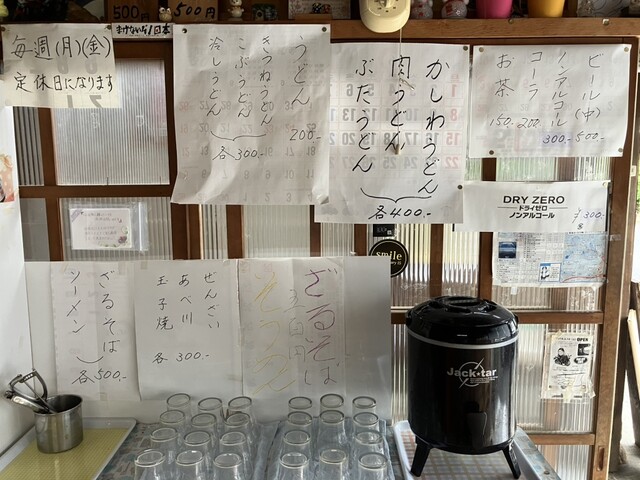 500円
500円
まけないぞ！日本
毎週(月)(金)
定休日になります
うどん 200.-
きつねうどん
こぶうどん
冷しうどん
各300.-
かしわうどん
肉うどん
ぶたうどん
各400.-
ビール(中) 500.-
ノンアルコール 300.-
コーラ 200.-
お茶 150.-
DRY ZERO
ドライゼロ
ノンアルコール
300.-
smile
ざるそば
ソーメン
各500.-
ぜんざい
あべ川
玉子焼
各300.-
ざるそば
五百円
そうめん
Jack・tar